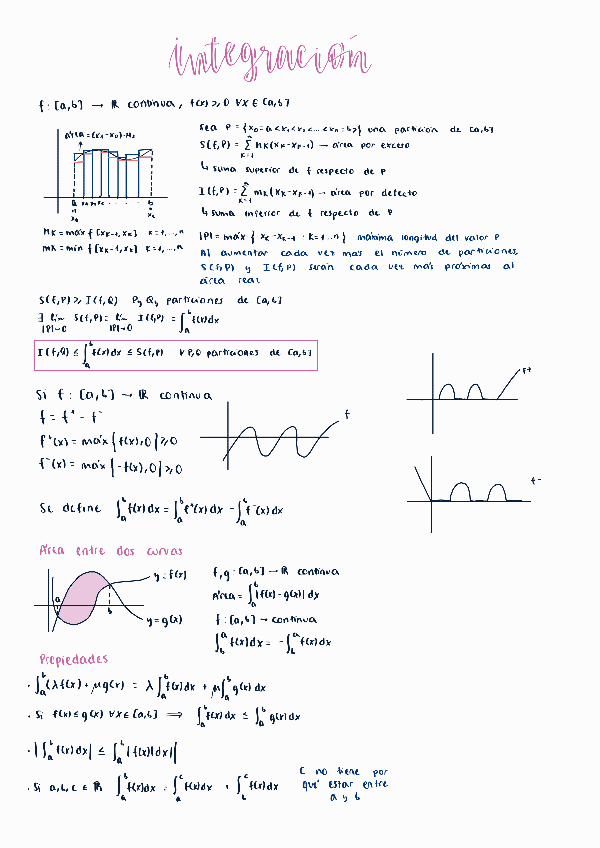 integración
f: [a,b] → ℝ continua, f(x) ≥ 0 ∀x ∈ [a,b]
Área = (x₁-x₀)·M₁
a x₁ x₂ x₃ ..... b
x₀ xₙ
Mk = máx f [xk-1, xk] k=1,...,n
mk = mín f [xk-1, xk] k=1,...,n
Sea P = {x₀=a<x₁<x₂<...<xₙ=b} una partición de [a,b]
S(f,P) = Σⁿk=1 Mk(xk-xk-1) → área por exceso
↳ suma superior de f respecto de P
I(f,P) = Σⁿk=1 mk(xk-xk-1) → área por defecto
↳ suma inferior de f respecto de P
|P| = máx { xk-xk-1 · k=1...n } máxima longitud del valor P
Al aumentar cada vez más el número de particiones
S(f,P) y I(f,P) serán cada vez más próximas al
área real
S(f,P) ≥ I(f,Q) P y Q, particiones de [a,b]
∃ lím|P|→0 S(f,P) = lím|P|→0 I(f,P) = ∫ₐᵇ f(x)dx
I(f,Q) ≤ ∫ₐᵇ f(x)dx ≤ S(f,P) ∀ P,Q particiones de [a,b]
Si f: [a,b] → ℝ continua
f = f⁺ - f⁻
f⁺(x) = máx {f(x),0} ≥ 0
f⁻(x) = máx {-f(x),0} ≥ 0
f
f+
f-
Se define ∫ₐᵇ f(x)dx = ∫ₐᵇ f⁺(x)dx - ∫ₐᵇ f⁻(x)dx
Área entre dos curvas
y=f(x)
a b
y=g(x)
f,g: [a,b] → ℝ continua
Área = ∫ₐᵇ |f(x) - g(x)| dx
f: [a,b] → continua
∫ f(x)dx = -∫ f(x)dx
Propiedades
· ∫ₐᵇ (λf(x) + μg(x) = λ∫ₐᵇ f(x)dx + μ∫ₐᵇ g(x)dx
· Si f(x) ≤ g(x) ∀x ∈ [a,b] ⟹ ∫ₐᵇ f(x)dx ≤ ∫ₐᵇ g(x)dx
· |∫ₐᵇ f(x)dx| ≤ ∫ₐᵇ |f(x)dx||
· Si a,b,c ∈ ℝ ∫ₐᵇ f(x)dx = ∫ₐᶜ f(x)dx + ∫ f(x)dx
c no tiene por
qué estar entre
a y b